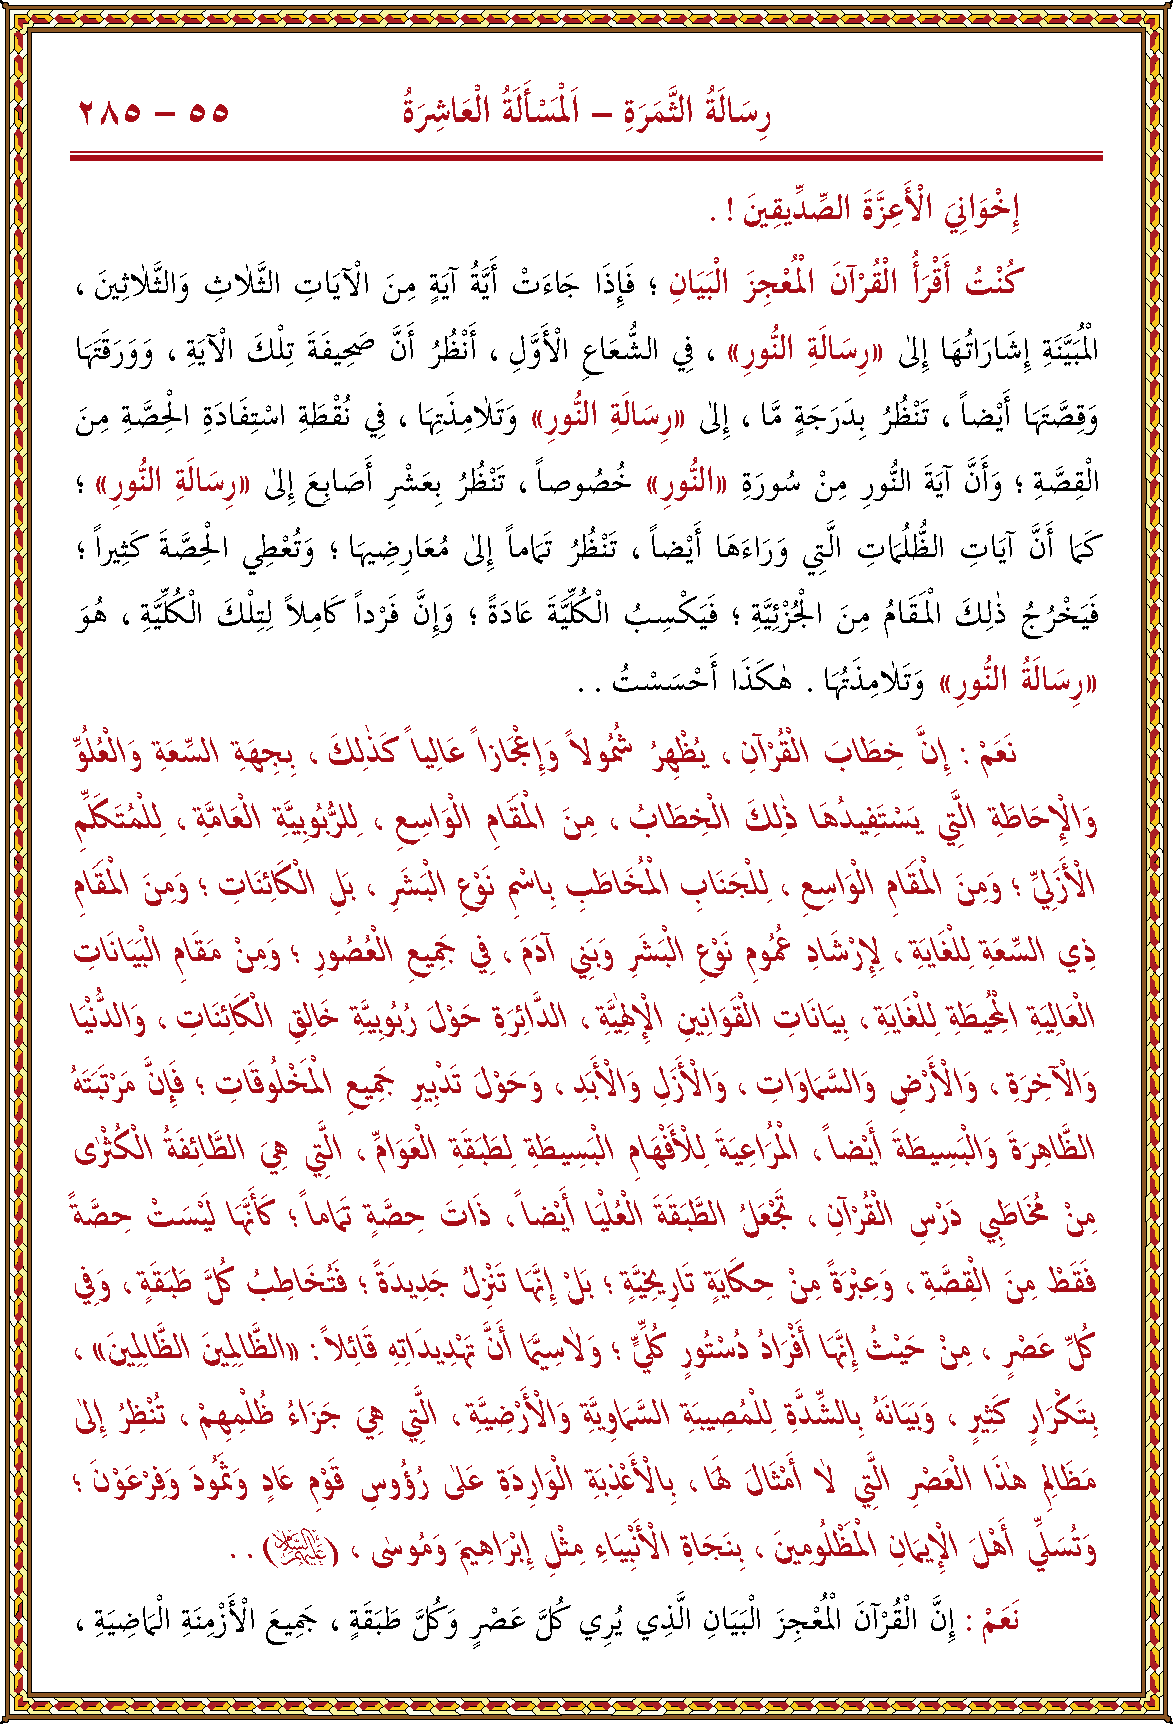 رِسَالَةُ الثَّمَرَةِ – اَلْمَسْأَلَةُ الْعَاشِرَةُ ٥٥ – ٢٨٥
إِخْوَانِيَ الْأَعِزَّةَ الصِّدِّيقِينَ ! .
كُنْتُ أَقْرَأُ الْقُرْآنَ الْمُعْجِزَ الْبَيَانِ ؛ فَإِذَا جَاءَتْ أَيَّةُ آيَةٍ مِنَ الْآيَاتِ الثَّلَاثِ وَالثَّلَاثِينَ ،
الْمُبَيَّنَةِ إِشَارَاتُهَا إِلَىٰ «رِسَالَةِ النُّورِ» ، فِي الشُّعَاعِ الْأَوَّلِ ، أَنْظُرُ أَنَّ صَحِيفَةَ تِلْكَ الْآيَةِ ، وَوَرَقَتَهَا
وَقِصَّتَهَا أَيْضاً ، تَنْظُرُ بِدَرَجَةٍ مَّا ، إِلَىٰ «رِسَالَةِ النُّورِ» وَتَلَامِذَتِهَا ، فِي نُقْطَةِ اسْتِفَادَةِ الْحِصَّةِ مِنَ
الْقِصَّةِ ؛ وَأَنَّ آيَةَ النُّورِ مِنْ سُورَةِ «النُّورِ» خُصُوصاً ، تَنْظُرُ بِعَشْرِ أَصَابِعَ إِلَىٰ «رِسَالَةِ النُّورِ» ؛
كَمَا أَنَّ آيَاتِ الظُّلُمَاتِ الَّتِي وَرَاءَهَا أَيْضاً ، تَنْظُرُ تَمَاماً إِلَىٰ مُعَارِضِيهَا ؛ وَتُعْطِي الْحِصَّةَ كَثِيراً ؛
فَيَخْرُجُ ذٰلِكَ الْمَقَامُ مِنَ الْجُزْئِيَّةِ ؛ فَيَكْسِبُ الْكُلِّيَّةَ عَادَةً ؛ وَإِنَّ فَرْداً كَامِلاً لِتِلْكَ الْكُلِّيَّةِ ، هُوَ
«رِسَالَةُ النُّورِ» وَتَلَامِذَتُهَا . هٰكَذَا أَحْسَسْتُ . .
نَعَمْ : إِنَّ خِطَابَ الْقُرْآنِ ، يُظْهِرُ شُمُولاً وَإِعْجَازاً عَالِياً كَذٰلِكَ ، بِجِهَةِ السِّعَةِ وَالْعُلُوِّ
وَالْإِحَاطَةِ الَّتِي يَسْتَفِيدُهَا ذٰلِكَ الْخِطَابُ ، مِنَ الْمَقَامِ الْوَاسِعِ ، لِلرُّبُوبِيَّةِ الْعَامَّةِ ، لِلْمُتَكَلِّمِ
الْأَزَلِيِّ ؛ وَمِنَ الْمَقَامِ الْوَاسِعِ ، لِلْجَنَابِ الْمُخَاطَبِ بِاسْمِ نَوْعِ الْبَشَرِ ، بَلِ الْكَائِنَاتِ ؛ وَمِنَ الْمَقَامِ
ذِي السِّعَةِ لِلْغَايَةِ ، لِإِرْشَادِ عُمُومِ نَوْعِ الْبَشَرِ وَبَنِي آدَمَ ، فِي جَمِيعِ الْعُصُورِ ؛ وَمِنْ مَقَامِ الْبَيَانَاتِ
الْعَالِيَةِ الْمُحِيطَةِ لِلْغَايَةِ ، بِيَانَاتِ الْقَوَانِينِ الْإِلٰهِيَّةِ ، الدَّائِرَةِ حَوْلَ رُبُوبِيَّةِ خَالِقِ الْكَائِنَاتِ ، وَالدُّنْيَا
وَالْآخِرَةِ ، وَالْأَرْضِ وَالسَّمَاوَاتِ ، وَالْأَزَلِ وَالْأَبَدِ ، وَحَوْلَ تَدْبِيرِ جَمِيعِ الْمَخْلُوقَاتِ ؛ فَإِنَّ مَرْتَبَتَهُ
الظَّاهِرَةَ وَالْبَسِيطَةَ أَيْضاً ، الْمُرَاعِيَةَ لِلْأَفْهَامِ الْبَسِيطَةِ لِطَبَقَةِ الْعَوَامِّ ، الَّتِي هِيَ الطَّائِفَةُ الْكُثْرَىٰ
مِنْ مُخَاطَبِي دَرْسِ الْقُرْآنِ ، تَجْعَلُ الطَّبَقَةَ الْعُلْيَا أَيْضاً ، ذَاتَ حِصَّةٍ تَمَاماً ؛ كَأَنَّهَا لَيْسَتْ حِصَّةً
فَقَطْ مِنَ الْقِصَّةِ ، وَعِبْرَةً مِنْ حِكَايَةٍ تَارِيخِيَّةٍ ؛ بَلْ إِنَّهَا تَنْزِلُ جَدِيدَةً ؛ فَتُخَاطِبُ كُلَّ طَبَقَةٍ ، وَفِي
كُلِّ عَصْرٍ ، مِنْ حَيْثُ إِنَّهَا أَفْرَادُ دُسْتُورٍ كُلِّيٍّ ؛ وَلَاسِيَّمَا أَنَّ تَهْدِيدَاتِهِ قَائِلاً : «الظَّالِمِينَ الظَّالِمِينَ» ،
بِتَكْرَارٍ كَثِيرٍ ، وَبَيَانَهُ بِالشِّدَّةِ لِلْمُصِيبَةِ السَّمَاوِيَّةِ وَالْأَرْضِيَّةِ ، الَّتِي هِيَ جَزَاءُ ظُلْمِهِمْ ، تُنْظِرُ إِلَىٰ
مَظَالِمِ هٰذَا الْعَصْرِ الَّتِي لَا أَمْثَالَ لَهَا ، بِالْأَعْذِبَةِ الْوَارِدَةِ عَلَىٰ رُؤُوسِ قَوْمِ عَادٍ وَثَمُودَ وَفِرْعَوْنَ ؛
وَتُسَلِّي أَهْلَ الْإِيمَانِ الْمَظْلُومِينَ ، بِنَجَاةِ الْأَنْبِيَاءِ مِثْلِ إِبْرَاهِيمَ وَمُوسَىٰ ، (عَلَيْهِمَا السَّلَامُ) . .
نَعَمْ : إِنَّ الْقُرْآنَ الْمُعْجِزَ الْبَيَانِ الَّذِي يُرِي كُلَّ عَصْرٍ وَكُلَّ طَبَقَةٍ ، جَمِيعَ الْأَزْمِنَةِ الْمَاضِيَةِ ،